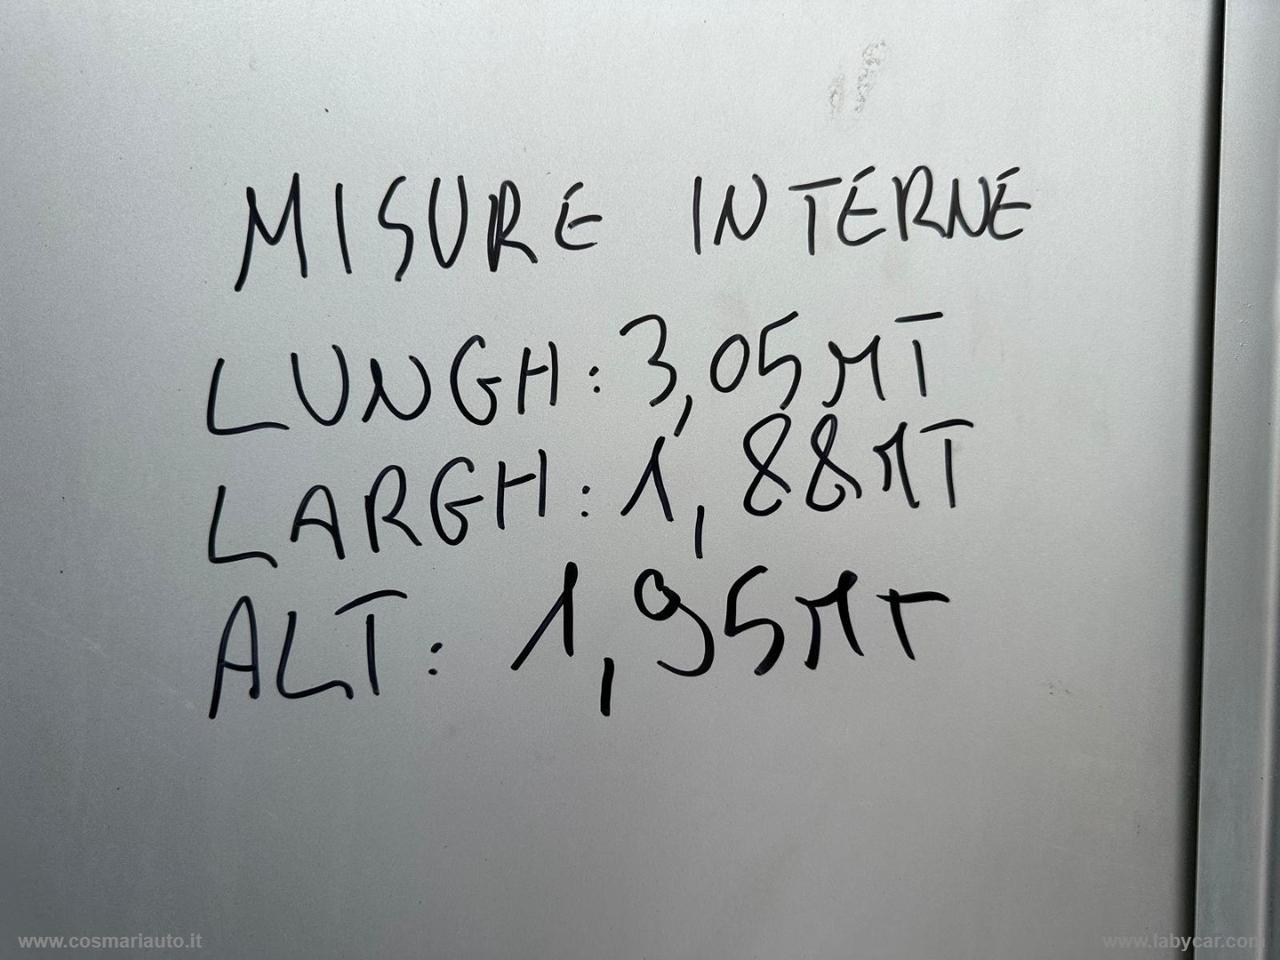 MISURE INTERNE
LUNGH: 3,05 MT
LARGH: 1,88 MT
ALT: 1,95 MT
www.cosmariauto.it
www.labycar.com